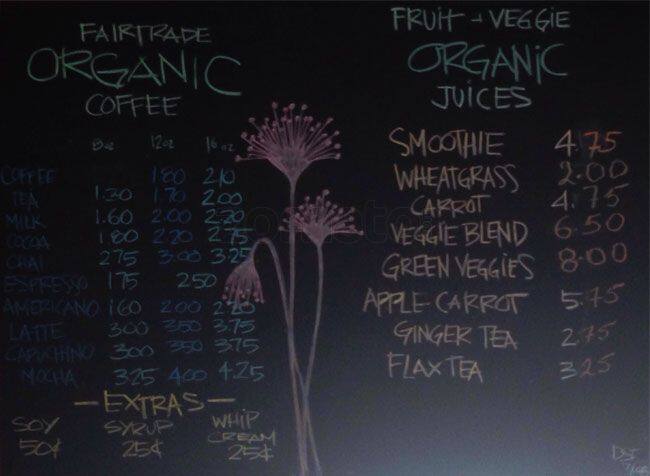 FAIRTRADE
ORGANIC
COFFEE
8oz 12oz 16oz
COFFEE 1.80 2.10
TEA 1.30 1.70 2.00
MILK 1.60 2.00 2.20
COCOA 1.80 2.20 2.75
CHAI 2.75 3.00 3.25
ESPRESSO 1.75 2.50
AMERICANO 1.60 2.00
LATTE 3.00 3.50 3.75
CAPUCHINO 3.00 3.50 3.75
MOCHA 3.25 4.00 4.25
—EXTRAS—
SOY SYRUP WHIP CREAM
50¢ 25¢ 25¢
FRUIT + VEGGIE
ORGANIC
JUICES
SMOOTHIE 4.75
WHEATGRASS 2.00
CARROT 4.75
VEGGIE BLEND 6.50
GREEN VEGGIES 8.00
APPLE-CARROT 5.75
GINGER TEA 2.75
FLAX TEA 3.25